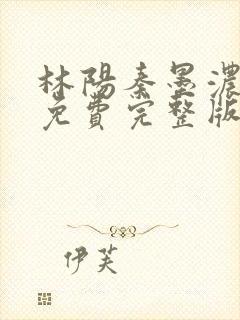 林陽秦墨濃
免費完整版
伊芙